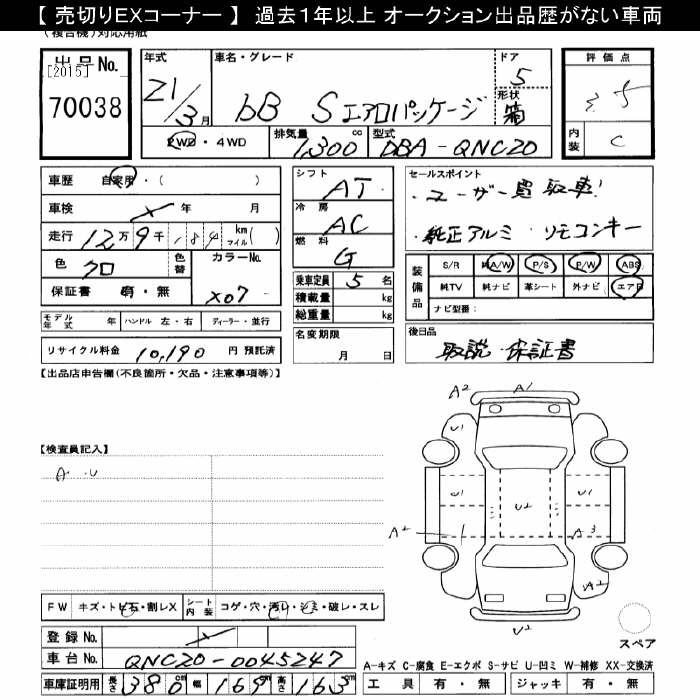 【 売切りEXコーナー 】 過去1年以上 オークション出品歴がない車両
(複合機)対応用紙
出品No.
[2015]
70038
年式 車名・グレード ドア
21/3月 bB Sエアロパッケージ 5
形状
箱
2WD・4WD 排気量 1,300 cc 型式 DBA-QNC20
評価点
3.5
内装 C
車歴 自家用・( )
車検 年 月
走行 12万9千184 km マイル( )
色 クロ 色替 カラーNo.
保証書 有・無 X07
モデル年式 年 ハンドル 左・右 ディーラー・並行
リサイクル料金 10,190 円 預託済
シフト AT
冷房 AC
燃料 G
乗車定員 5 名
積載量 kg
総重量 kg
名変期限
月 日
セールスポイント
・ユーザー買取車!
・純正アルミ ・リモコンキー
装備品 S/R 純A/W P/S P/W ABS
純TV 純ナビ 革シート 外ナビ エアB
ナビ型番:
後日品
取説・保証書
【出品店申告欄(不良箇所・欠品・注意事項等)】
【検査員記入】
A ・U
A2 A1
U1
U1 U2 U1
A2 A3
A2
U2
スペア
FW キズ・トビ石・割レX シート内装 コゲ・穴・汚レ・シミ・破レ・スレ
登録No.
車台No. QNC20-0045247
車庫証明用 長さ 380 cm 幅 169 cm 高さ 163 cm
A-キズ C-腐食 E-エクボ S-サビ U-凹ミ W-補修 XX-交換済
工具 有・無 ジャッキ 有・無